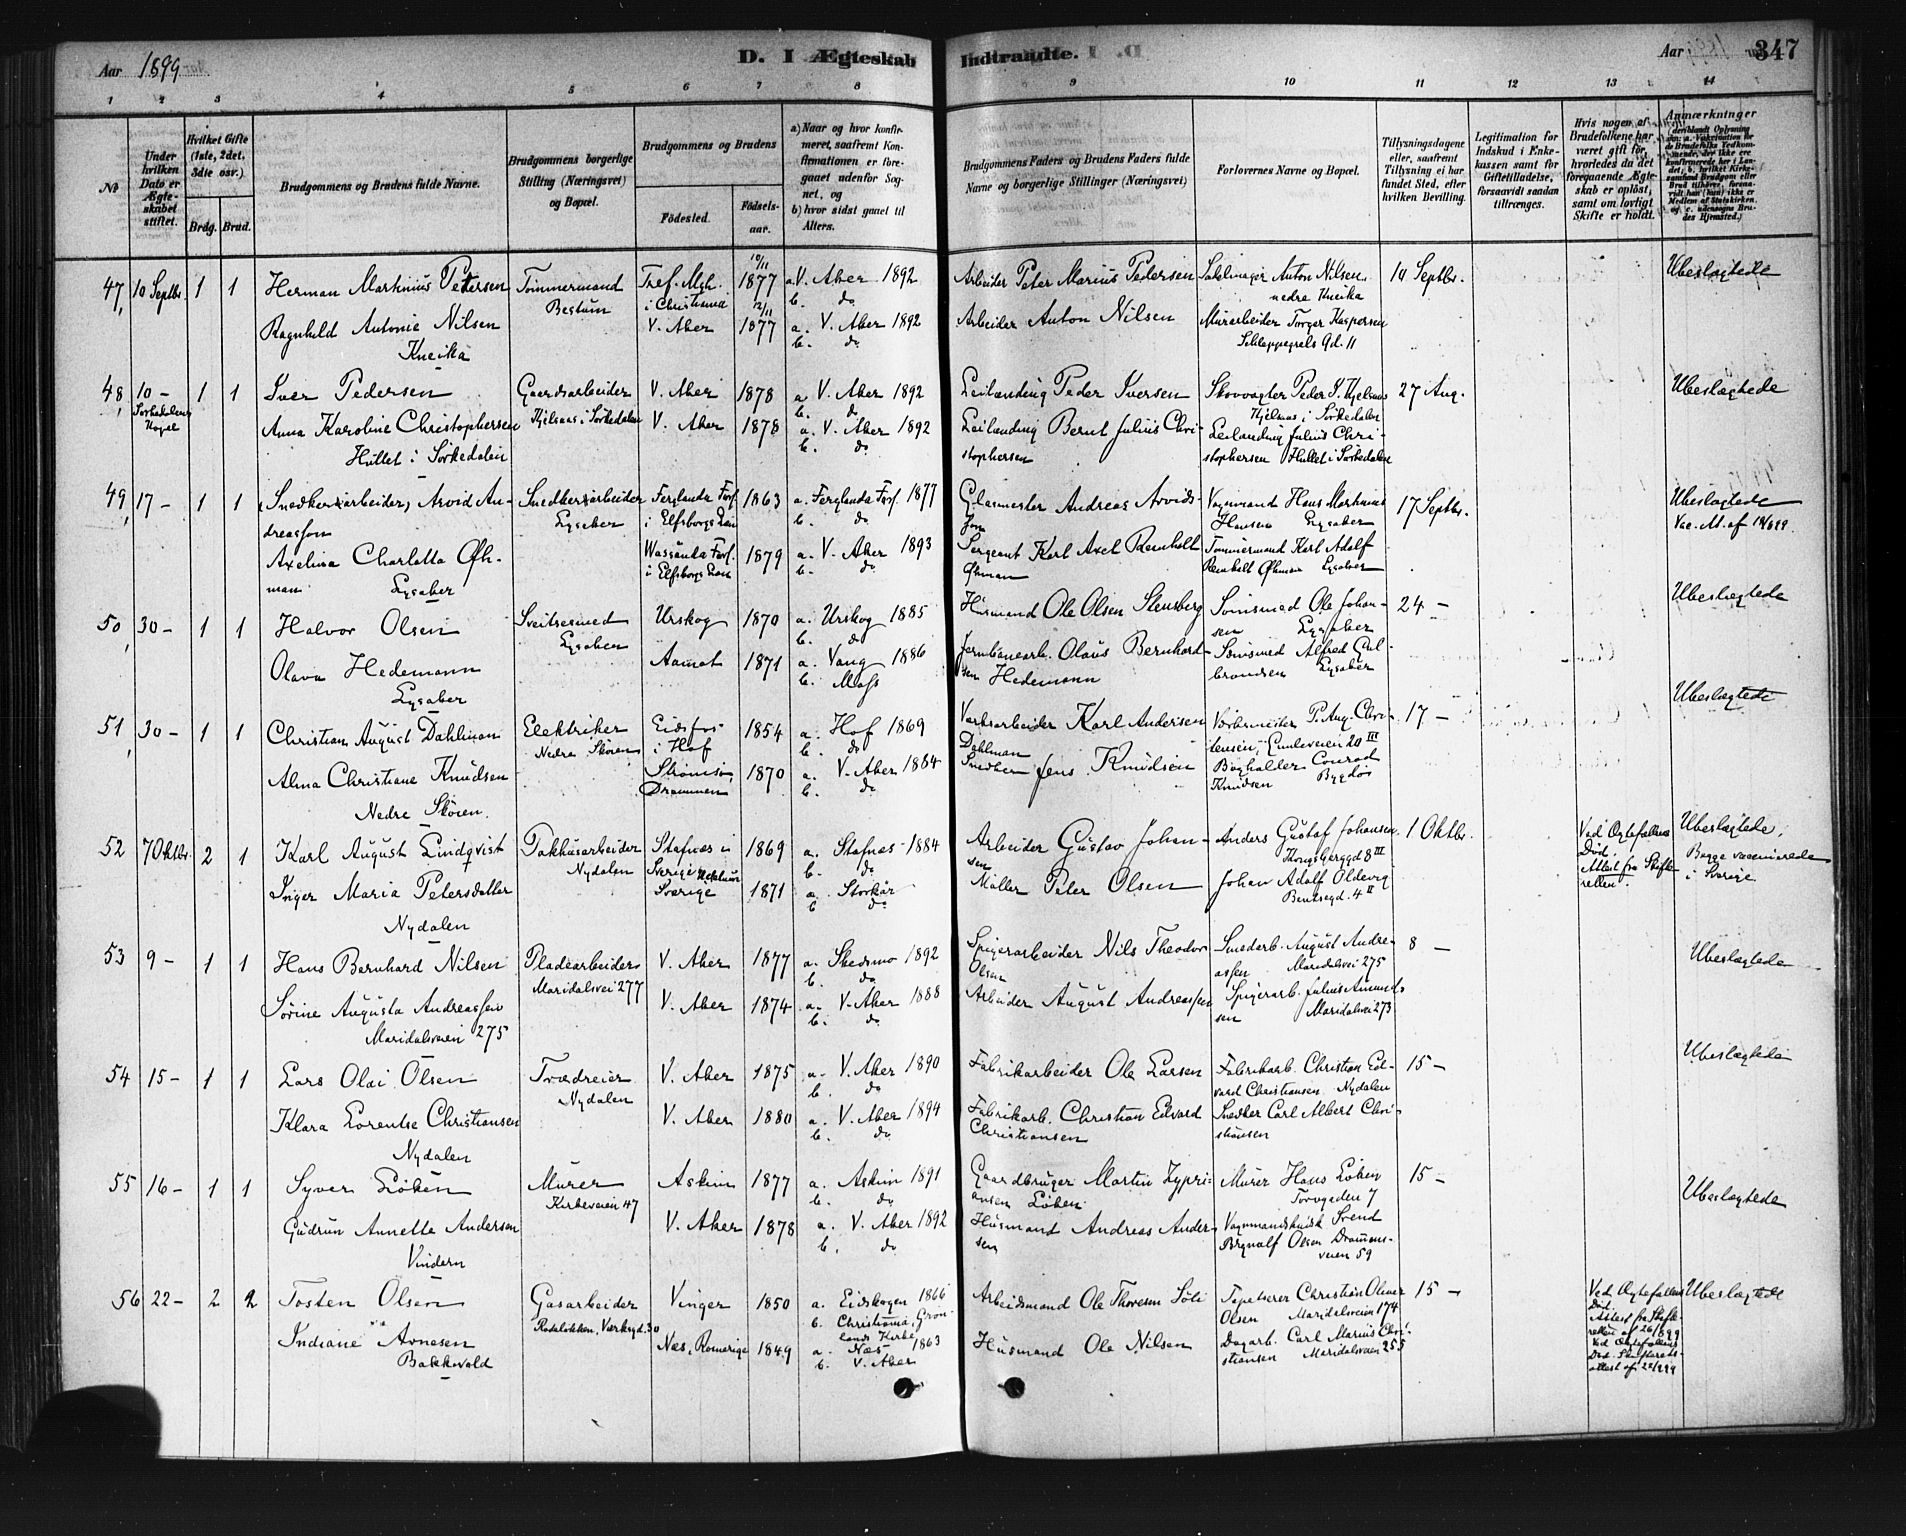 Aar 1899
D. I Ægteskab Indtraadte.
Aar 347
1 2 3 4 5 6 7 8 9 10 11 12 13 14
No
Under hvilken Dato er Ægteskabet stiftet.
Hvilket Gifte (1ste, 2det, 3die osv.)
Brdg. Brud.
Brudgommens og Brudens fulde Navne.
Brudgommens borgerlige Stilling (Næringsvei) og Bopæl.
Brudgommens og Brudens
Fødested.
Fødselsaar.
a) Naar og hvor konfirmeret, saafremt Konfirmationen er foregaaet udenfor Sognet, og
b) hvor sidst gaaet til Alters.
Brudgommens Faders og Brudens Faders fulde Navne og borgerlige Stillinger (Næringsvei)
Forlovernes Navne og Bopæl.
Tillysningsdagene eller, saafremt Tillysning ei har fundet Sted, efter hvilken Bevilling.
Legitimation for Indskud i Enkekassen samt for Giftetilladelse, forsaavidt saadan tiltrænges.
Hvis nogen af Brudefolkene har været gift før, hvorledes da det foregaaende Ægteskab er opløst, samt om lovligt Skifte er holdt.
Anmærkninger
47, 10 Septbr. 1 1 Herman Martinius Petersen Tømmermand Bestum Fref. Mgh. i Christiania 10/11 1877 a. V. Aker 1892 b. do Arbeider Peter Marius Pedersen Anton Nilsen nedre Kneika 10 Septbr. Ubeslægtede
Ragnhild Antonie Nilsen Kneika V. Aker 12/11 1877 a. V. Aker 1892 b. do Arbeider Anton Nilsen Murarbeider Torger Kaspersen Schleppegrels Gd. 11
48, 10 - Sørkedalens Kapel 1 1 Iver Pedersen Gaardsarbeider Hjelsaas i Sørkedalen V. Aker 1878 a. V. Aker 1892 b. do Leilænding Peder Iversen Skovvogter Peder I. Hjelsaas Hjelsaas i Sørkedalen 27 Aug. Ubeslægtede
Anna Karoline Christophersen Hullet i Sørkedalen V. Aker 1878 a. V. Aker 1892 b. do Leilænding Bernt Julius Christophersen Leilænding Julius Christophersen Hullet i Sørkedalen
49, 17 - 1 1 (Snedkerarbeider) Arvid Andreasson Snedkerarbeider Lysaker Ferglanda Førs. i Elfsborgs Län 1863 a. Ferglanda Førs. 1877 b. do Glasmester Andreas Arvidsson Vognmand Hans Martinius Hansen Lysaker 17 Septbr. Ubeslægtede Vac. At. af
Axelina Charlotta Øhman Lysaker Wassända Førs. i Elfsborgs Län 1879 a. V. Aker 1893 b. do Sergeant Karl Axel Reinholt Øhman Tømmermand Karl Adolf Reinholt Øhman Lysaker
50, 30 - 1 1 Halvor Olsen Sveitsesmed Lysaker Urskog 1870 a. Urskog 1885 b. do Husmand Ole Olsen Stensberg Sømsmed Ole Johansen Lysaker 24 - Ubeslægtede
Olava Hedemann Lysaker Aamot 1871 a. Vang 1886 b. Moss Jernbanearb. Olaus Bernhardsen Hedemann Sømsmed Alfred Gulbrandsen Lysaker
51, 30 - 1 1 Christian August Dahlman Elektriker Nedre Skøien Eidsfos i Hof 1854 a. Hof 1869 b. do Verksarbeider Karl Andersen Dahlman P. Aug. Christensen, Gamleveien 20 III 17 - Ubeslægtede
Alma Christiane Knudsen Nedre Skøien. Strømsø, Drammen 1870 a. V. Aker 1884 b. do Snedker Jens Knudsen Boghalder Conrad Knudsen Bygdø
52 7 Oktbr. 2 1 Karl August Lindqvist Pakhusarbeider Nydalen Stafnæs i Sverige 1869 a. Stafnæs 1884 b. do Arbeider Gustav Johansen Anders Gustaf Johansen Thongsberggd 8 III 1 Oktbr. Ved Ægtefællens Død. Attest fra Skifteretten. Ubeslægtede. Begge vaccinerede i Sverige
Inger Maria Petersdatter Nydalen Sverige 1871 a. Storkär b do Møller Peter Olsen Johan Adolf Oldevig Bentsegd. 4 II
53 9 - 1 1 Hans Bernhard Nilsen Pladearbeider Maridalsvei 277 V. Aker 1877 a. Skedsmo 1892 b. do Spigerarbeider Nils Theodor Olsen Smedarb. August Andreassen Maridalsvei 275 8 - Ubeslægtede
Sørine Augusta Andreassen Maridalsveien 275 V. Aker 1874 a. V. Aker 1888 b. do Arbeider August Andreassen Spigerarb. Julius Amundsen Maridalsvei 273
54 15 - 1 1 Lars Olai Olsen Trædreier Nydalen V. Aker 1875 a. V. Aker 1890 b. do Fabrikarbeider Ole Larsen Fabrikarb. Christian Edvard Christiansen Nydalen 15 - Ubeslægtede
Klara Lorentse Christiansen Nydalen V. Aker 1880 a. V. Aker 1894 b. do Fabrikarb. Christian Edvard Christiansen Snedker Carl Albert Christiansen
55 16 - 1 1 Syver Løken Murer Kirkeveien 47 Askim 1877 a. Askim 1891 b. do Gaardbruger Martin Zypriansen Løken Murer Hans Løken Torvgaden 7 15 - Ubeslægtede
Gudrun Annette Andersen Vindern V. Aker 1878 a. V. Aker 1892 b. do Husmand Andreas Andersen Vognmandskusk Svend Brynolf Olsen Drammensveien 59
56 22 - 2 2 Tosten Olsen Gasarbeider Rodeløkken, Verksgd. 30 Vinger 1850 a. Eidskogen 1866 b. Christiania, Grønlands Kirke Arbeidsmand Ole Thoresen Sóli Tapetserer Christian Oliver Olsen Maridalsveien 174 15 - Ved Ægtefællens Død. Attest fra Skifteretten af 26/899 Ved Ægtefællens Død. Skifterets-attest af 22/999 Ubeslægtede
Indiane Arnesen Bakkevold Næs, Romerige 1849 a. Næs 1863 b. V. Aker Husmand Ole Nilsen Dagarb. Carl Marius Christiansen Maridalsveien 255